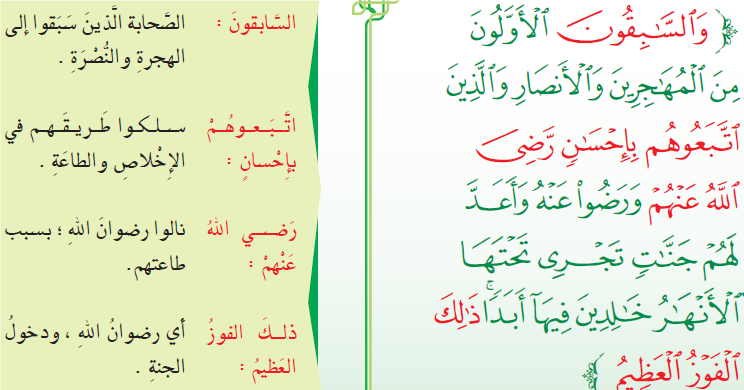 وَٱلسَّـٰبِقُونَ ٱلۡأَوَّلُونَ
مِنَ ٱلۡمُهَـٰجِرِينَ وَٱلۡأَنصَارِ وَٱلَّذِينَ
ٱتَّبَعُوهُم بِإِحۡسَـٰنٍ رَّضِيَ
ٱللَّهُ عَنۡهُمۡ وَرَضُواْ عَنۡهُ وَأَعَدَّ
لَهُمۡ جَنَّـٰتٍ تَجۡرِي تَحۡتَهَا
ٱلۡأَنۡهَـٰرُ خَـٰلِدِينَ فِيهَآ أَبَدٗاۚ ذَٰلِكَ
ٱلۡفَوۡزُ ٱلۡعَظِيمُ
السَّابقونَ : الصَّحابة الَّذينَ سَبَقوا إلى
الهجرةِ والنُّصْرَةِ .
اتَّبَـعـوهُـمْ سـلـكـوا طَـريـقَـهـم في
بإحْسانٍ : الإخْلاصِ والطاعَةِ .
رَضـــي اللهُ نالوا رضوانَ اللهِ ؛ بسبب
عَنْهمْ : طاعتهم.
ذلـكَ الفوزُ أي رضوانُ اللهِ ، ودخولُ
العَظيمُ : الجنةِ .